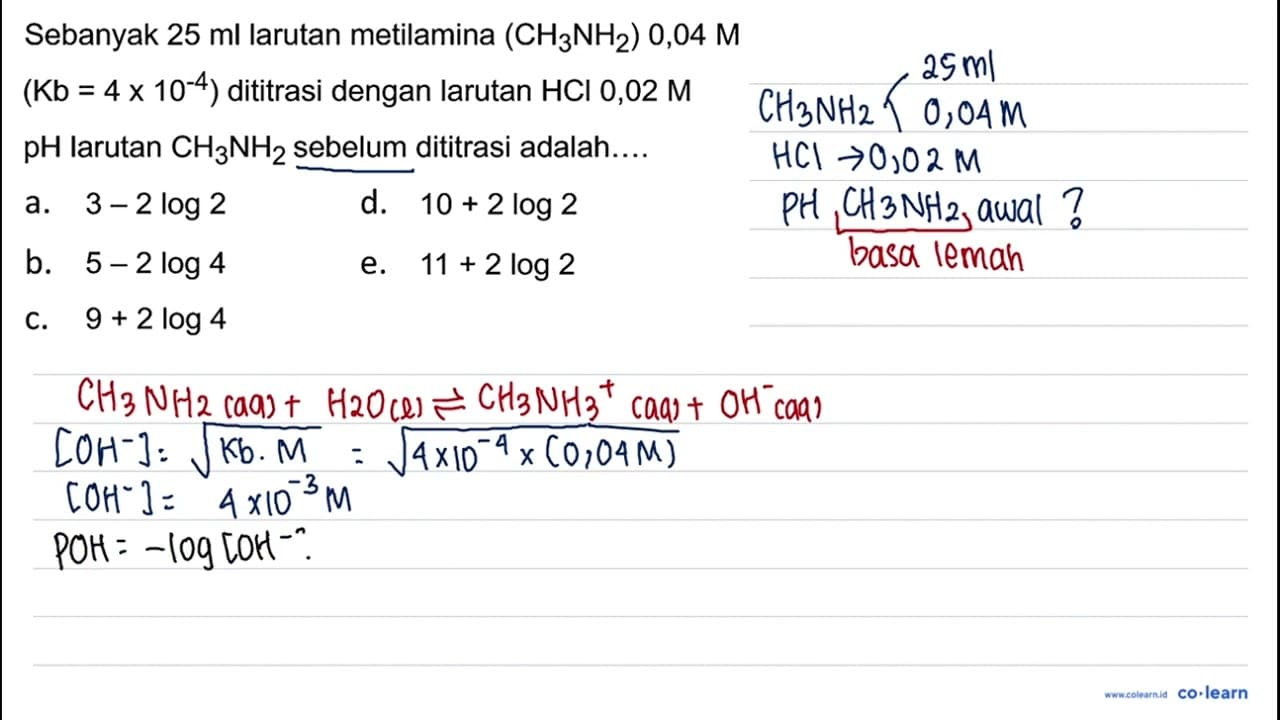 Sebanyak 25 ml larutan metilamina (CH₃NH₂) 0,04 M
(Kb = 4 x 10⁻⁴) dititrasi dengan larutan HCl 0,02 M
pH larutan CH₃NH₂ sebelum dititrasi adalah....
a. 3 – 2 log 2
b. 5 – 2 log 4
c. 9 + 2 log 4
d. 10 + 2 log 2
e. 11 + 2 log 2
25 ml
CH3NH2 { 0,04 M
HCl → 0,02 M
PH CH3NH2, awal ?
basa lemah
CH3NH2 (aq) + H2O(l) ⇌ CH3NH3⁺ (aq) + OH⁻ (aq)
[OH⁻] = √Kb. M = √4x10⁻⁴ x (0,04 M)
[OH⁻] = 4 x10⁻³ M
POH = -log [OH⁻
www.colearn.id co·learn